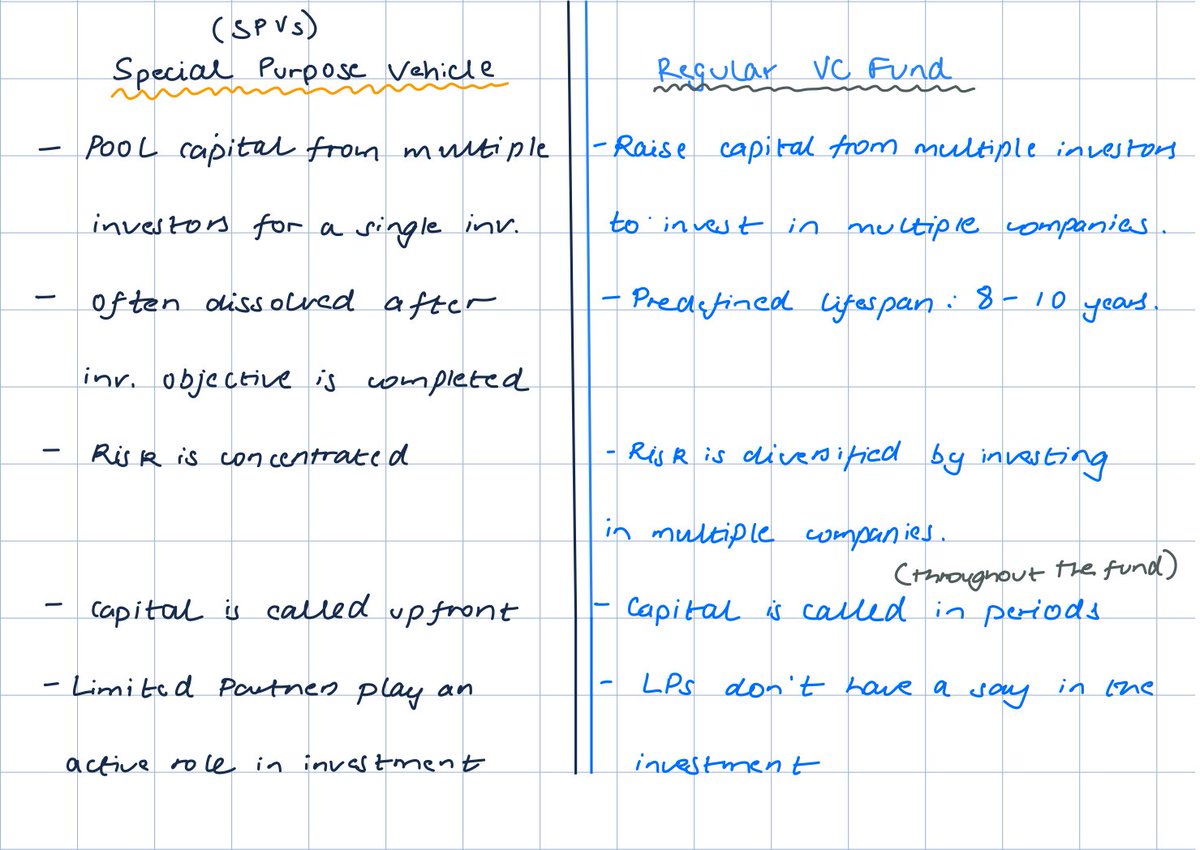 (SPVs)
Special Purpose Vehicle
- Pool capital from multiple
investors for a single inv.
- Often dissolved after
inv. objective is completed
- Risk is concentrated
- Capital is called upfront
- Limited Partners play an
active role in investment
Regular VC Fund
- Raise capital from multiple investors
to invest in multiple companies.
- Predefined lifespan: 8-10 years.
- Risk is diversified by investing
in multiple companies.
(throughout the fund)
- Capital is called in periods
- LPs don't have a say in the
investment